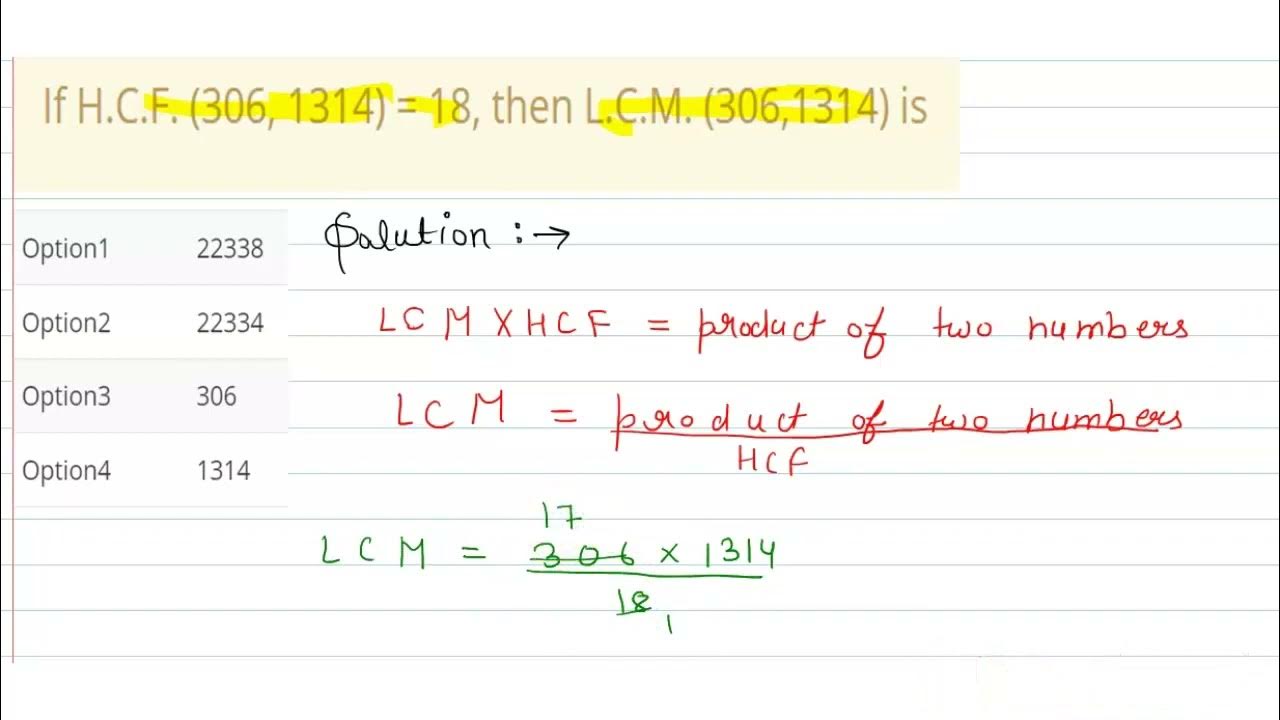 If H.C.F. (306, 1314) = 18, then L.C.M. (306,1314) is
Option1 22338
Option2 22334
Option3 306
Option4 1314
Solution :→
LCM X HCF = product of two numbers
LCM = product of two numbers
HCF
17
LCM = 306 × 1314
18
1